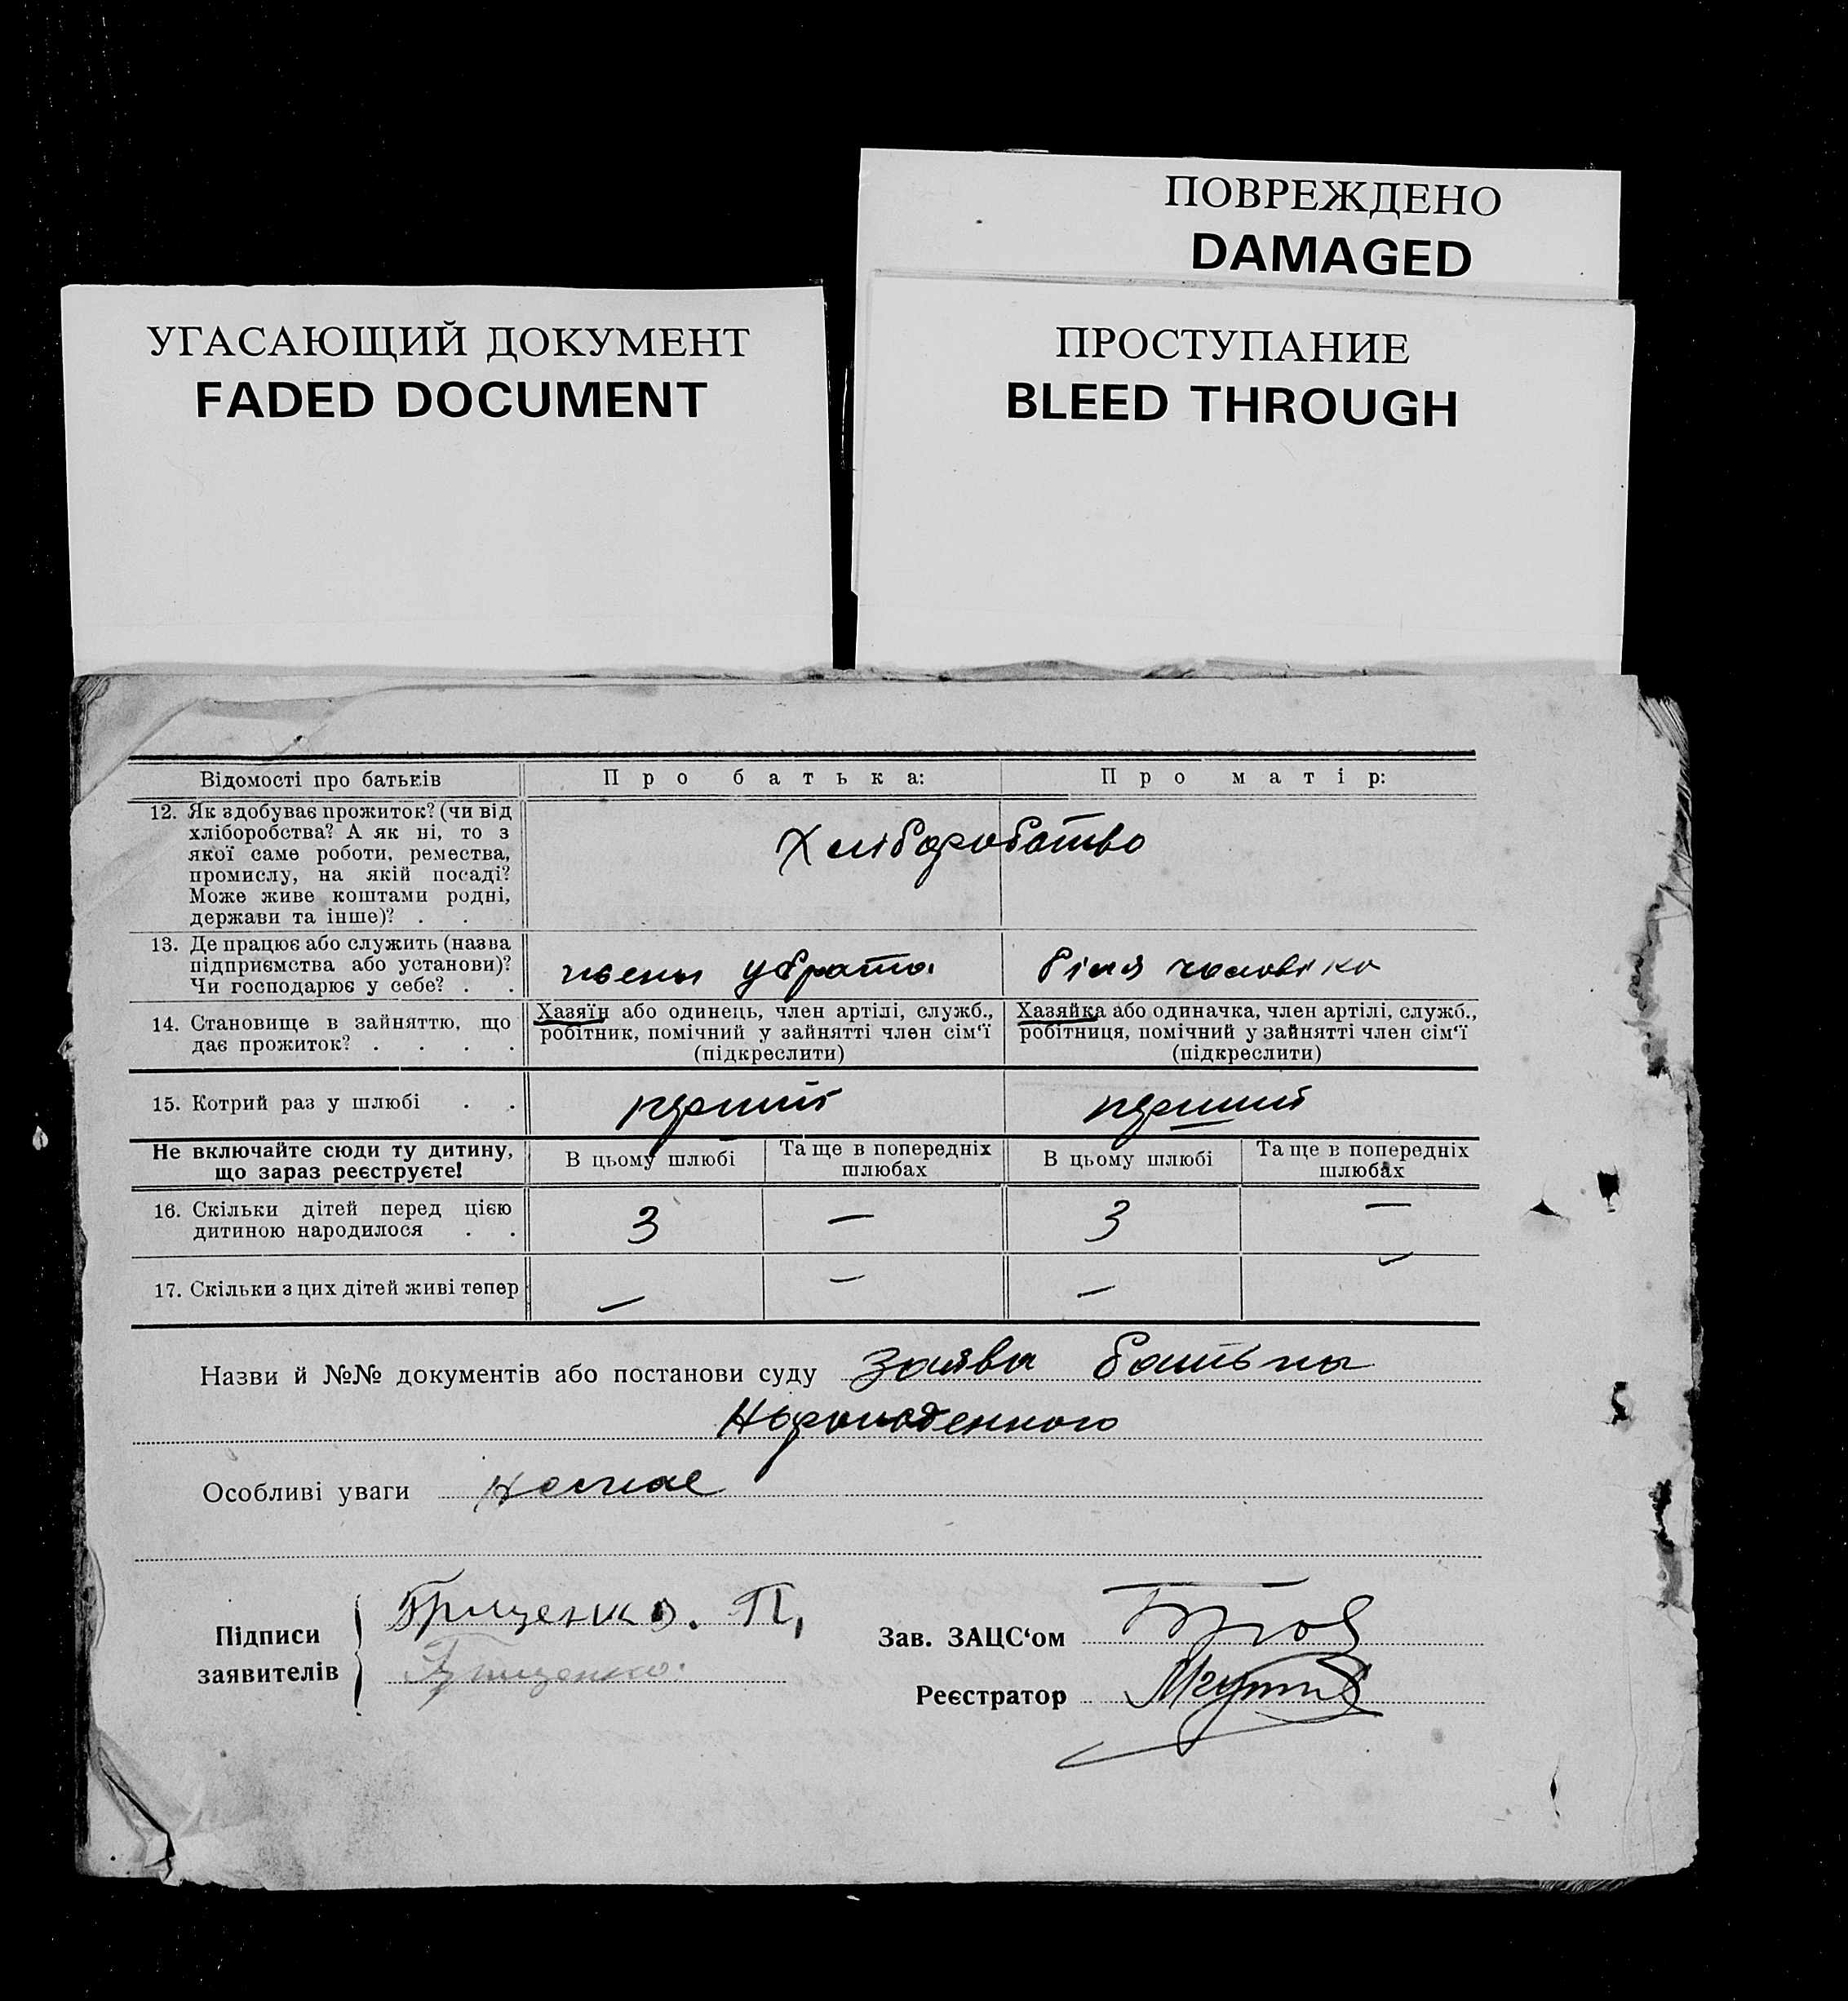 ПОВРЕЖДЕНО
DAMAGED
УГАСАЮЩИЙ ДОКУМЕНТ
FADED DOCUMENT
ПРОСТУПАНИЕ
BLEED THROUGH
Відомості про батьків
Про батька:
Про матір:
12. Як здобуває прожиток? (чи від
хліборобства? А як ні, то з
якої саме роботи, ремества,
промислу, на якій посаді?
Може живе коштами родні,
держави та інше)? . .
Хліборобство
13. Де працює або служить (назва
підприємства або установи)?
Чи господарює у себе? . .
у брата
біля чоловіка
14. Становище в зайняттю, що
дає прожиток? . . . .
Хазяїн або одинець, член артілі, служб.,
робітник, помічний у зайнятті член сім'ї
(підкреслити)
Хазяйка або одиначка, член артілі, служб.,
робітниця, помічний у зайнятті член сім'ї
(підкреслити)
15. Котрий раз у шлюбі . .
перший
перший
Не включайте сюди ту дитину,
що зараз реєструєте!
В цьому шлюбі
Та ще в попередніх
шлюбах
В цьому шлюбі
Та ще в попередніх
шлюбах
16. Скільки дітей перед цією
дитиною народилося . .
3 — 3 —
17. Скільки з цих дітей живі тепер
— — — —
Назви й №№ документів або постанови суду заява батька
Народженного
Особливі уваги немає
Підписи
заявителів
Грищенко. П,
Грищенко.
Зав. ЗАЦС'ом
Реєстратор